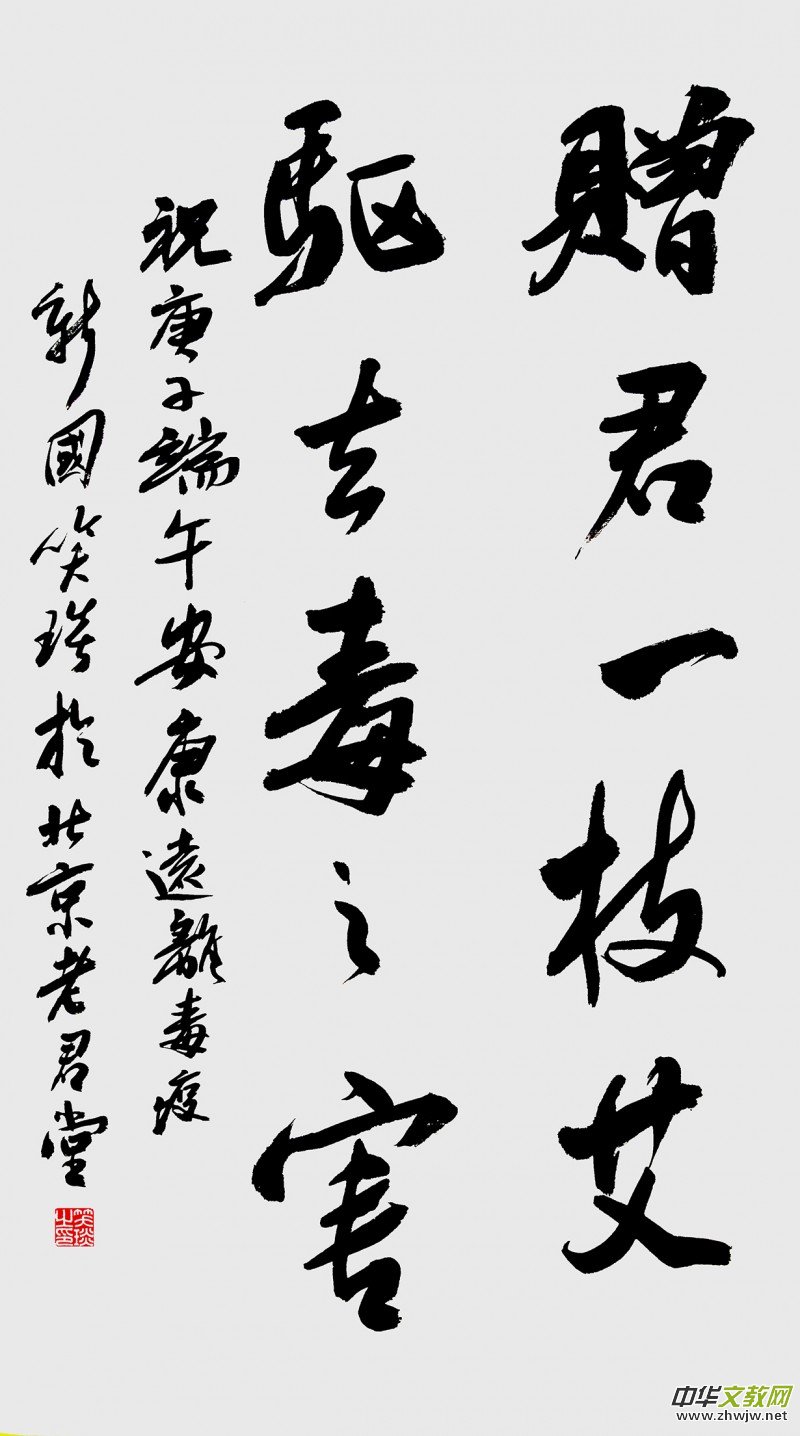 贈君一枝艾
驱去毒之害
祝庚子端午安康遠離毒疫
新國笑琰於北京老君堂
笑琰之印
中华文教网
www.zhwjw.net